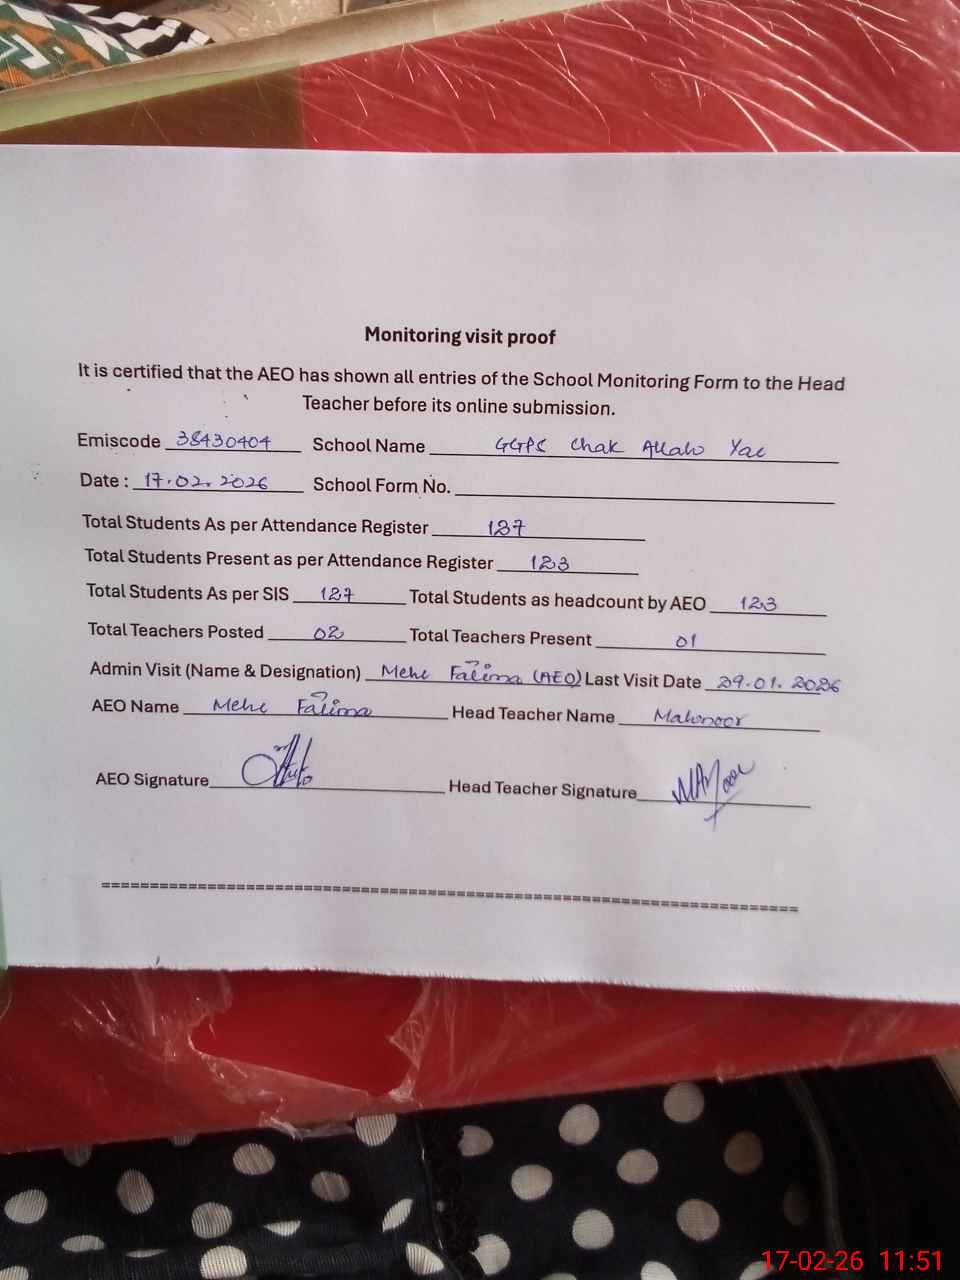 Monitoring visit proof
It is certified that the AEO has shown all entries of the School Monitoring Form to the Head
Teacher before its online submission.
Emiscode 38430404 School Name GGPS Chak Allah Yar
Date : 17.02.2026 School Form No.
Total Students As per Attendance Register 127
Total Students Present as per Attendance Register 123
Total Students As per SIS 127 Total Students as headcount by AEO 123
Total Teachers Posted 02 Total Teachers Present 01
Admin Visit (Name & Designation) Mehr Fatima (AEO) Last Visit Date 29.01.2026
AEO Name Mehr Fatima Head Teacher Name Mahnoor
AEO Signature Head Teacher Signature
17-02-26 11:51